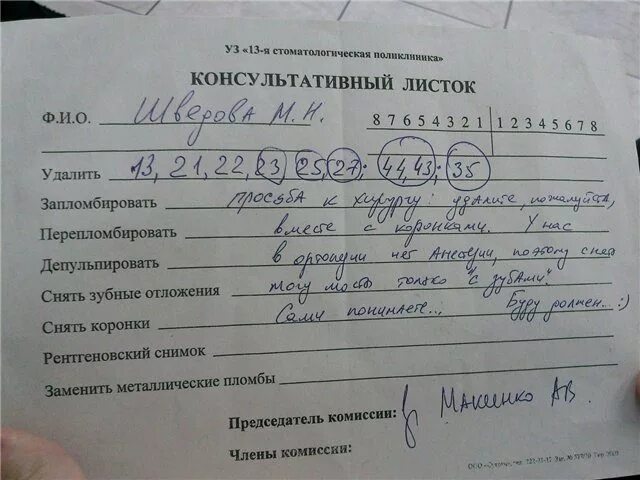 УЗ «13-я стоматологическая поликлиника»
КОНСУЛЬТАТИВНЫЙ ЛИСТОК
Ф.И.О. Шведова М.Н. 8 7 6 5 4 3 2 1 | 1 2 3 4 5 6 7 8
Удалить 13, 21, 22, 23, 25, 27; 44, 43; 35
Запломбировать просьба к хирургу: удалите, пожалуйста,
Перепломбировать вместе с коронками. У нас
Депульпировать в ортопедии нет Анестезии, поэтому снять
Снять зубные отложения могу мосты только "с зубами".
Снять коронки Сами понимаете... Буду должен...:)
Рентгеновский снимок
Заменить металлические пломбы
Председатель комиссии: Макиенко АВ.
Члены комиссии: